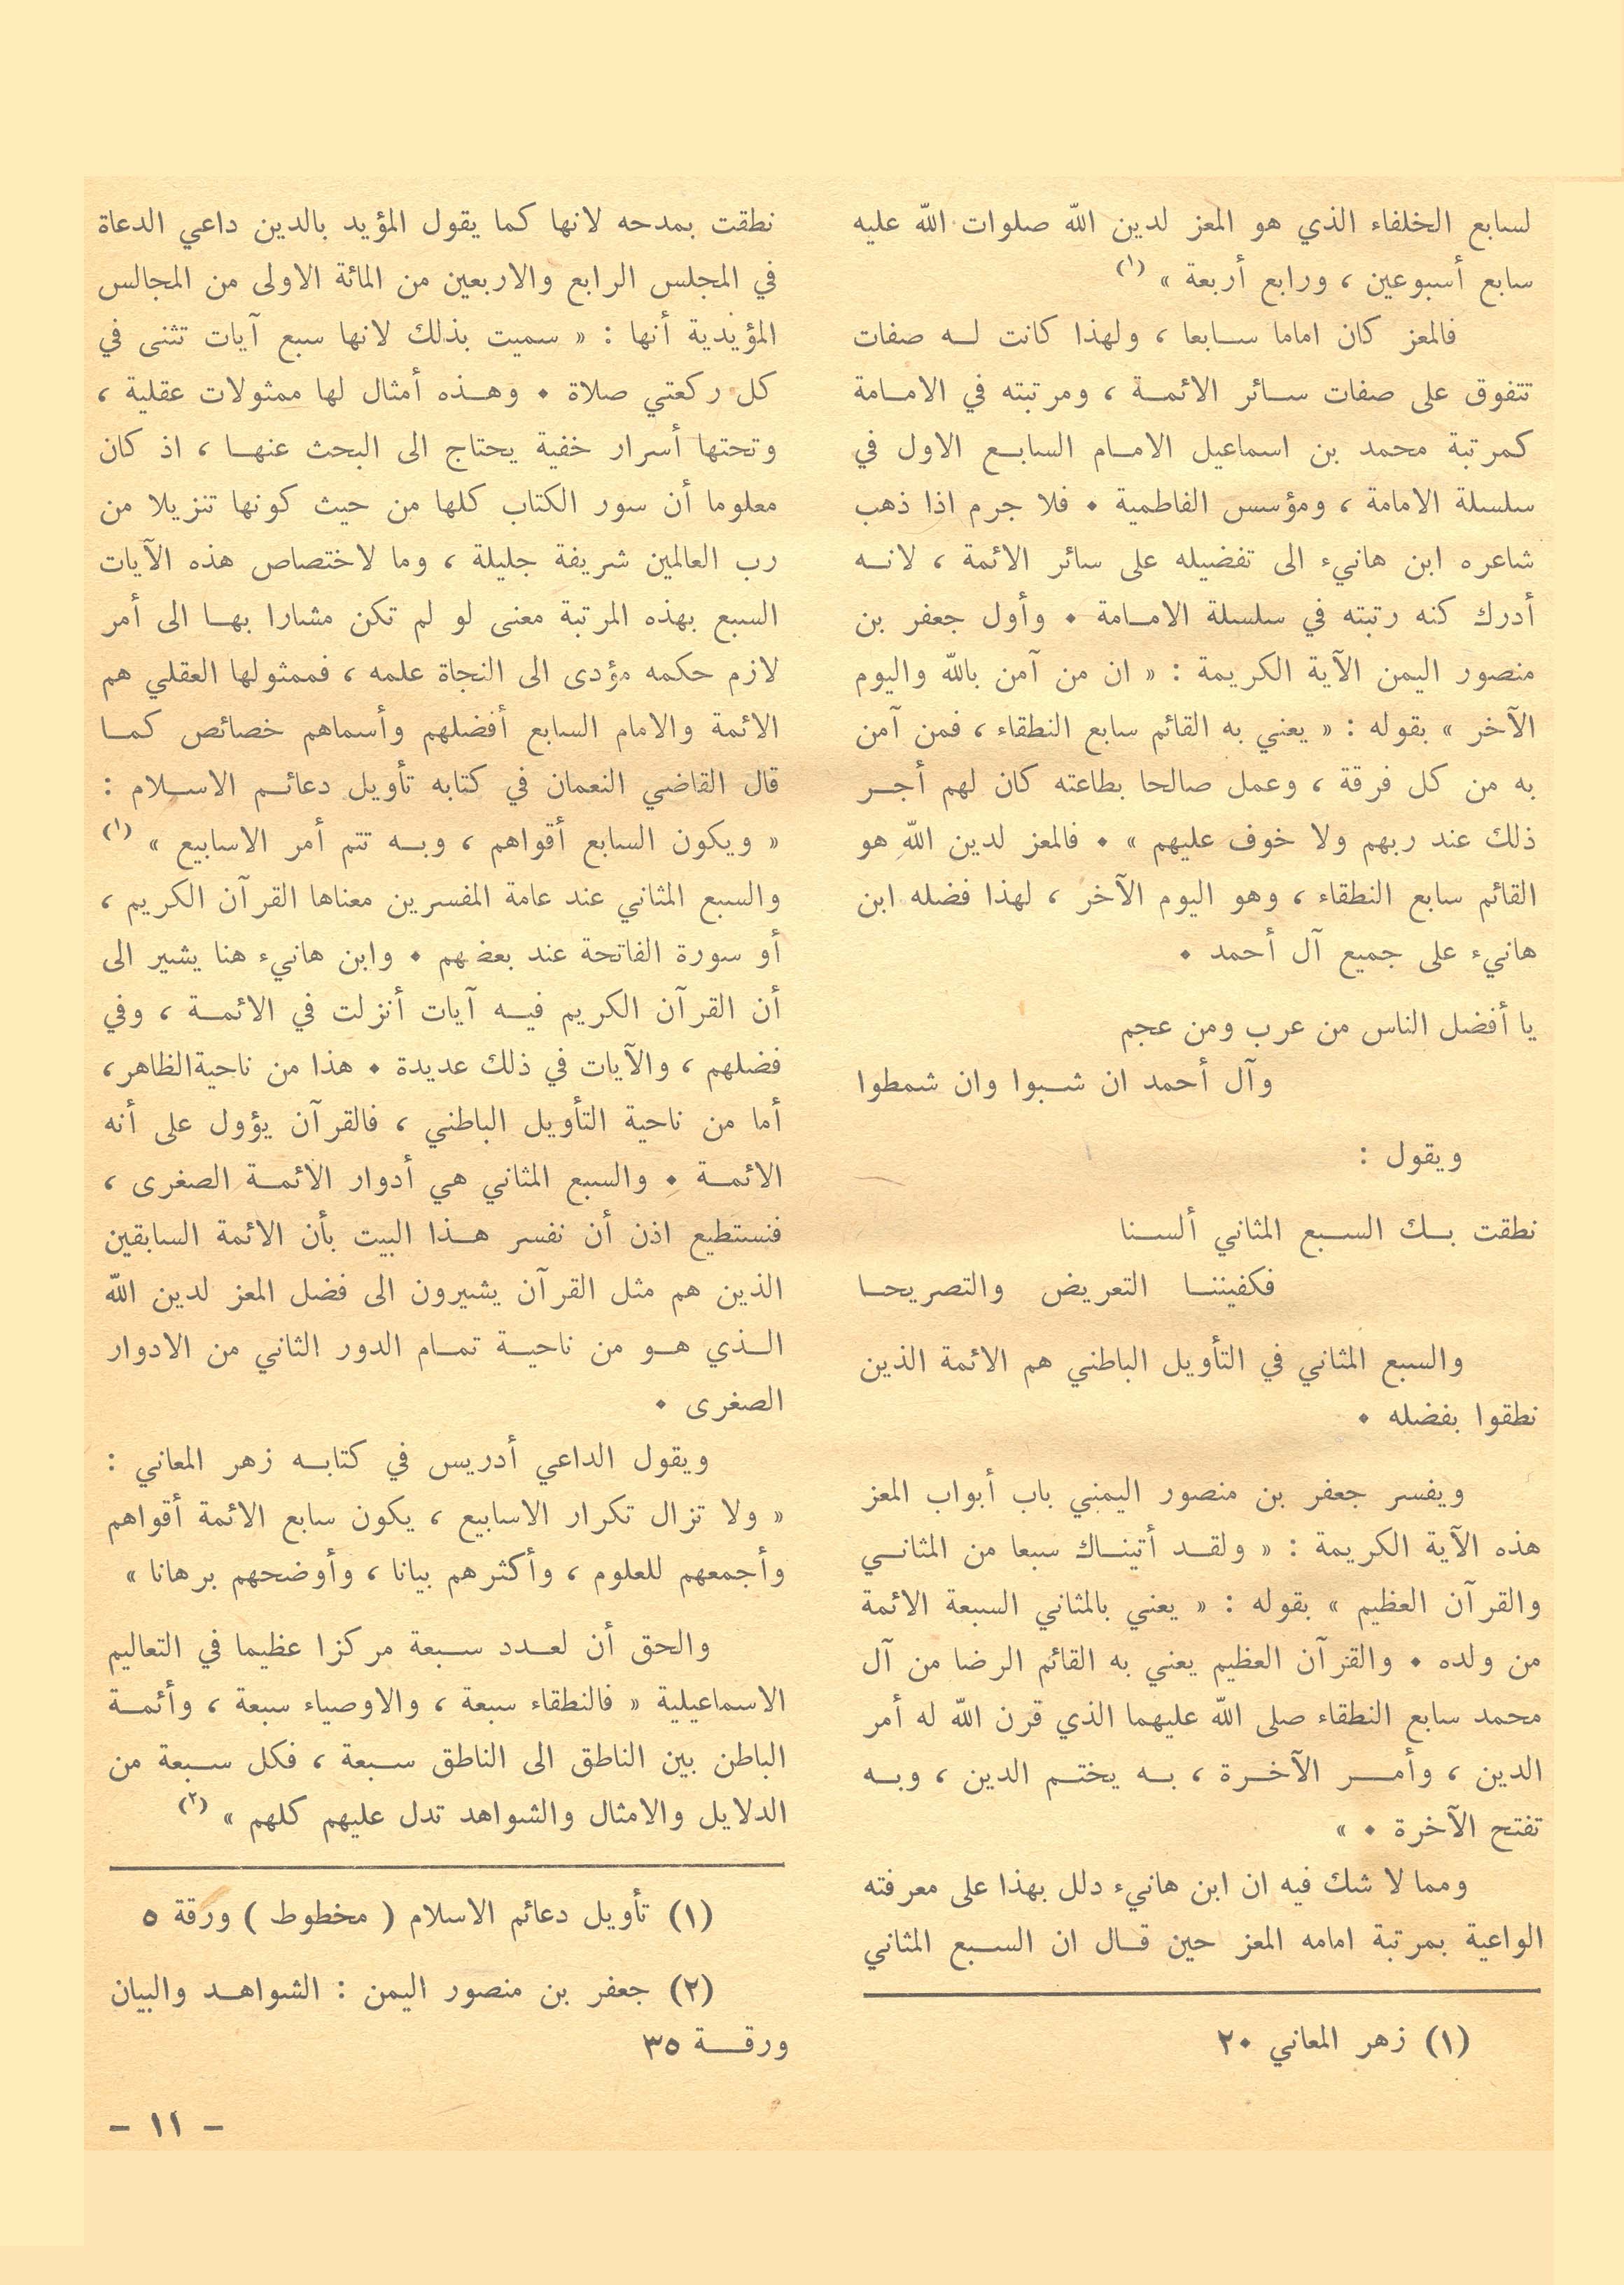 لسابع الخلفاء الذي هو المعز لدين الله صلوات الله عليه
سابع أسبوعين ، ورابع أربعة » (١)
فالمعز كان اماما سابعا ، ولهذا كانت له صفات
تتفوق على صفات سائر الائمة ، ومرتبته في الامامة
كمرتبة محمد بن اسماعيل الامام السابع الاول في
سلسلة الامامة ، ومؤسس الفاطمية ٠ فلا جرم اذا ذهب
شاعره ابن هانيء الى تفضيله على سائر الائمة ، لانه
أدرك كنه رتبته في سلسلة الامامة ٠ وأول جعفر بن
منصور اليمن الآية الكريمة : « ان من آمن بالله واليوم
الآخر » بقوله : « يعني به القائم سابع النطقاء ، فمن آمن
به من كل فرقة ، وعمل صالحا بطاعته كان لهم أجر
ذلك عند ربهم ولا خوف عليهم » ٠ فالمعز لدين الله هو
القائم سابع النطقاء ، وهو اليوم الآخر ، لهذا فضله ابن
هانيء على جميع آل أحمد ٠
يا أفضل الناس من عرب ومن عجم
وآل أحمد ان شبوا وان شمطوا
ويقول :
نطقت بك السبع المثاني ألسنا
فكفيننا التعريض والتصريحا
والسبع المثاني في التأويل الباطني هم الائمة الذين
نطقوا بفضله ٠
ويفسر جعفر بن منصور اليمني باب أبواب المعز
هذه الآية الكريمة : « ولقد أتيناك سبعا من المثاني
والقرآن العظيم » بقوله : « يعني بالمثاني السبعة الائمة
من ولده ٠ والقرآن العظيم يعني به القائم الرضا من آل
محمد سابع النطقاء صلى الله عليهما الذي قرن الله له أمر
الدين ، وأمر الآخرة ، به يختم الدين ، وبه
تفتح الآخرة ٠ »
ومما لا شك فيه ان ابن هانيء دلل بهذا على معرفته
الواعية بمرتبة امامه المعز حين قال ان السبع المثاني
(١) زهر المعاني ٢٠
نطقت بمدحه لانها كما يقول المؤيد بالدين داعي الدعاة
في المجلس الرابع والاربعين من المائة الاولى من المجالس
المؤيدية أنها : « سميت بذلك لانها سبع آيات تثنى في
كل ركعتي صلاة ٠ وهذه أمثال لها ممثولات عقلية ،
وتحتها أسرار خفية يحتاج الى البحث عنها ، اذ كان
معلوما أن سور الكتاب كلها من حيث كونها تنزيلا من
رب العالمين شريفة جليلة ، وما لاختصاص هذه الآيات
السبع بهذه المرتبة معنى لو لم تكن مشارا بها الى أمر
لازم حكمه مؤدى الى النجاة علمه ، فممثولها العقلي هم
الائمة والامام السابع أفضلهم وأسماهم خصائص كما
قال القاضي النعمان في كتابه تأويل دعائم الاسلام :
« ويكون السابع أقواهم ، وبه تتم أمر الاسابيع » (١)
والسبع المثاني عند عامة المفسرين معناها القرآن الكريم ،
أو سورة الفاتحة عند بعضهم ٠ وابن هانيء هنا يشير الى
أن القرآن الكريم فيه آيات أنزلت في الائمة ، وفي
فضلهم ، والآيات في ذلك عديدة ٠ هذا من ناحية الظاهر ،
أما من ناحية التأويل الباطني ، فالقرآن يؤول على أنه
الائمة ٠ والسبع المثاني هي أدوار الائمة الصغرى ،
فنستطيع اذن أن نفسر هذا البيت بأن الائمة السابقين
الذين هم مثل القرآن يشيرون الى فضل المعز لدين الله
الذي هو من ناحية تمام الدور الثاني من الادوار
الصغرى ٠
ويقول الداعي أدريس في كتابه زهر المعاني :
« ولا تزال تكرار الاسابيع ، يكون سابع الائمة أقواهم
وأجمعهم للعلوم ، وأكثرهم بيانا ، وأوضحهم برهانا »
والحق أن لعدد سبعة مركزا عظيما في التعاليم
الاسماعيلية « فالنطقاء سبعة ، والاوصياء سبعة ، وأئمة
الباطن بين الناطق الى الناطق سبعة ، فكل سبعة من
الدلايل والامثال والشواهد تدل عليهم كلهم » (٢)
(١) تأويل دعائم الاسلام ( مخطوط ) ورقة ٥
(٢) جعفر بن منصور اليمن : الشواهد والبيان
ورقة ٣٥
– ١١ –